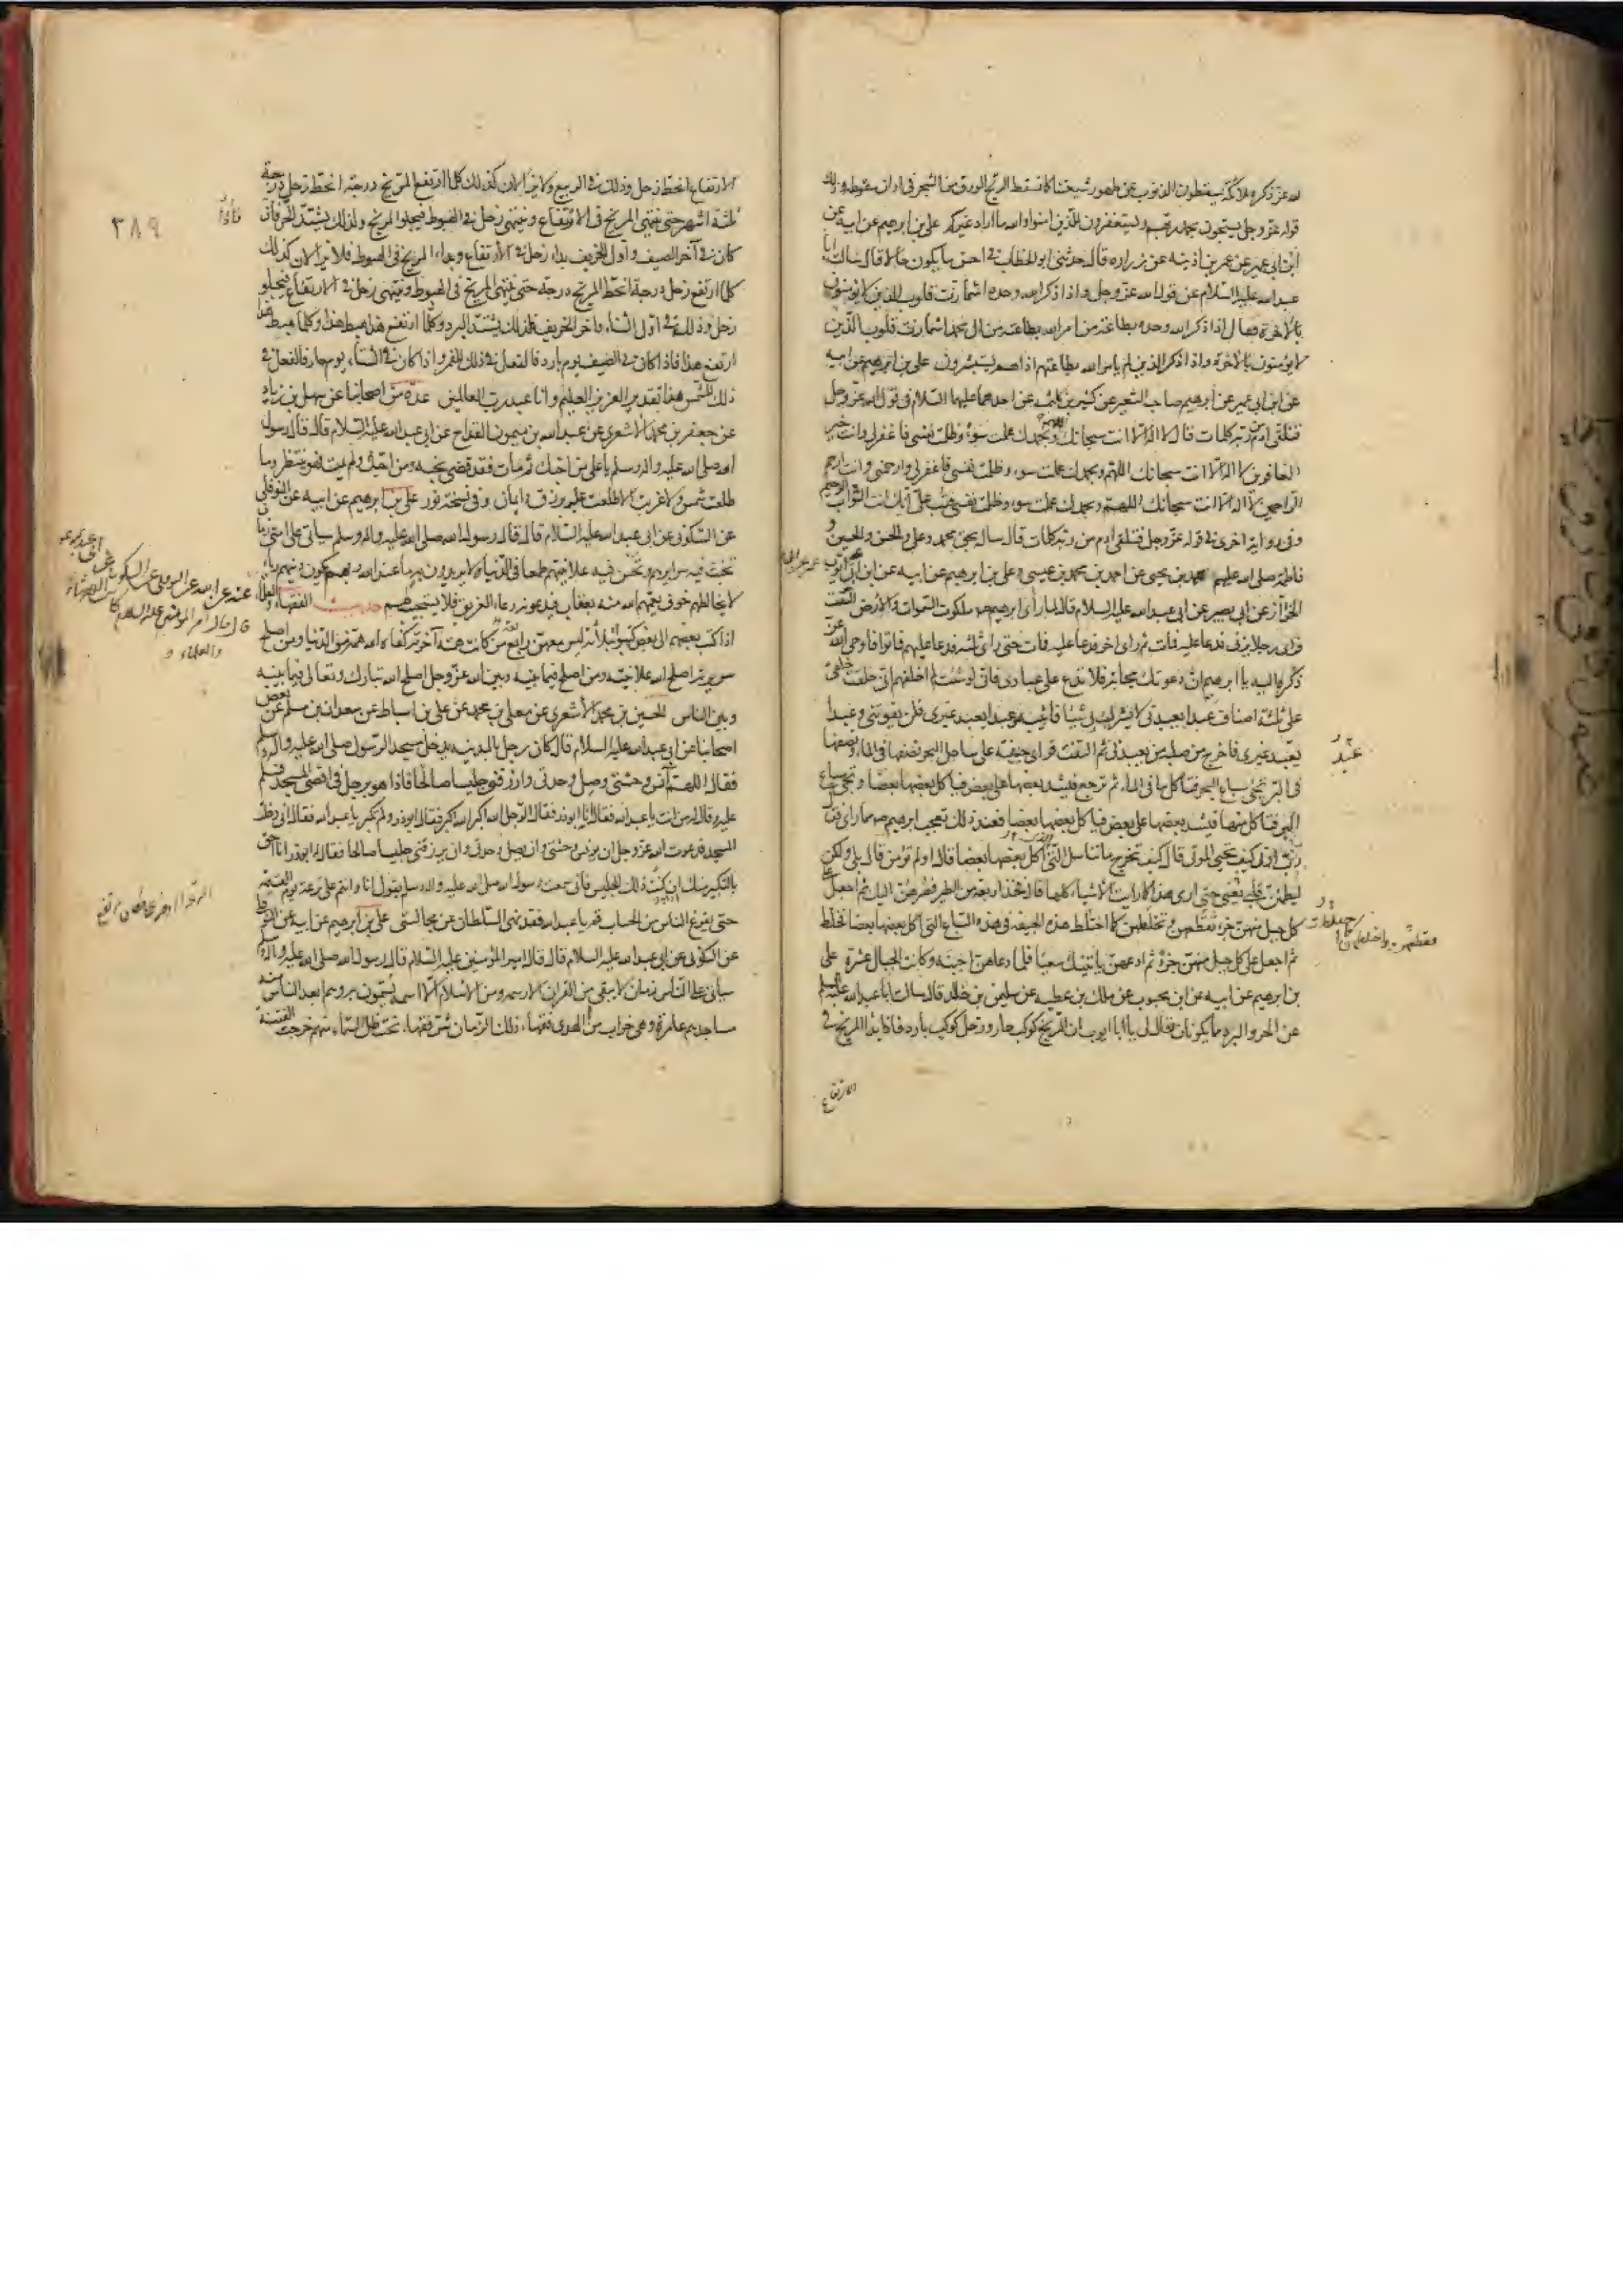 لله عز ذكره ملائكة يسقطون الذنوب عن ظهور شيعتنا كما تسقط الريح الورق من الشجر في اوان سقوطه وذلك
قوله عز وجل يسبحون بحمد ربهم ويستغفرون للذين امنوا والله ما اراد غيركم علي بن ابرهيم عن ابيه عن
ابن ابي عمير عن عمر بن اذينه عن زراره قال حدثني ابو الخطاب في احسن ما يكون حالا قال سالت ابا
عبد الله عليه السلام عن قول الله عز وجل واذا ذكر الله وحده اشمازت قلوب الذين لا يؤمنون
بالآخرة فقال اذا ذكر الله وحده بطاعة من امر الله بطاعته من ال محمد اشمازت قلوب الذين
لا يؤمنون بالآخرة واذا ذكر الذين لم يامر الله بطاعتهم اذا هم يستبشرون علي بن ابرهيم عن ابيه
عن ابن ابي عمير عن ابرهيم صاحب الشعير عن كثير بن كلثمه عن احدهما عليهما السلام في قول الله عز وجل
فتلقى ادم من ربه كلمات قال لا اله الا انت سبحانك اللهم وبحمدك عملت سوءا وظلمت نفسي فاغفر لي وانت خير
الغافرين لا اله الا انت سبحانك اللهم وبحمدك عملت سوءا وظلمت نفسي فاغفر لي وارحمني وانت ارحم
الراحمين لا اله الا انت سبحانك اللهم وبحمدك عملت سوءا وظلمت نفسي فتب علي انك انت التواب الرحيم
وفي رواية اخرى في قوله عز وجل فتلقى ادم من ربه كلمات قال ساله بحق محمد وعلي والحسن والحسين و
فاطمة صلى الله عليهم محمد بن يحيى عن احمد بن محمد بن عيسى وعلي بن ابرهيم عن ابيه عن ابن ابي عمير عن ابي ايوب
الخزاز عن ابي بصير عن ابي عبد الله عليه السلام قال لما راى ابرهيم ملكوت السموات والارض التفت
فراى رجلا يزني فدعا عليه فمات ثم راى اخر فدعا عليه فمات حتى راى ثلثه فدعا عليهم فماتوا فاوحى الله عز
ذكره اليه يا ابرهيم ان دعوتك مجابة فلا تدع على عبادي فاني لو شئت لم اخلقهم اني خلقت خلقي
على ثلثة اصناف عبدا يعبدني لا يشرك بي شيئا فاثيبه وعبدا يعبد غيري فلن يفوتني وعبدا
يعبد غيري فاخرج من صلبه من يعبدني ثم التفت فراى جيفة على ساحل البحر نصفها في الماء ونصفها
في البر تجئ سباع البحر فتاكل ما في الماء ثم ترجع فيشد بعضها على بعض فياكل بعضها بعضا وتجئ سباع
البر فتاكل منها فيشد بعضها على بعض فياكل بعضها بعضا فعند ذلك تعجب ابرهيم مما راى وقال
رب ارني كيف تحيي الموتى قال كيف تخرج ما تناسل التي اكل بعضها بعضا قال اولم تؤمن قال بلى ولكن
ليطمئن قلبي يعني حتى ارى هذا كما رايت الاشياء كلها قال فخذ اربعة من الطير فصرهن اليك ثم اجعل على
كل جبل منهن جزءا فقطعهن واخلطهن كما اختلط هذه الجيفة في هذه السباع التي اكل بعضها بعضا فخلط
ثم اجعل على كل جبل منهن جزءا ثم ادعهن ياتينك سعيا فلما دعاهن اجبنه وكانت الجبال عشرة علي
بن ابرهيم عن ابيه عن ابن محبوب عن ملك بن عطيه عن سليمن بن خالد قال سالت ابا عبد الله عليه السلام
عن الحر والبرد مما يكونان فقال لي يا ابا ايوب ان المريخ كوكب حار وزحل كوكب بارد فاذا بدا المريخ في
الارتفاع
عبد
٣٨٩
الارتفاع انحط زحل وذلك في الربيع ولا يزالان كذلك كلما ارتفع المريخ درجة انحط زحل درجة
ثلثة اشهر حتى ينتهي المريخ في الارتفاع وينتهي زحل في الهبوط فيجلو المريخ ولذلك يشتد الحر فاذا
كان في آخر الصيف واول الخريف بدا زحل في الارتفاع وبدا المريخ في الهبوط فلا يزالان كذلك
كلما ارتفع زحل درجة انحط المريخ درجة حتى ينتهي المريخ في الهبوط وينتهي زحل في الارتفاع فيجلو
زحل وذلك في اول الشتاء وآخر الخريف فلذلك يشتد البرد وكلما ارتفع هذا هبط هذا وكلما هبط هذا
ارتفع هذا فاذا كان في الصيف يوم بارد فالفعل في ذلك للقمر واذا كان في الشتاء يوم حار فالفعل في
ذلك للشمس هذا تقدير العزيز العليم وانا عبد رب العالمين عدة من اصحابنا عن سهل بن زياد
عن جعفر بن محمد الاشعري عن عبد الله بن ميمون القداح عن ابي عبد الله عليه السلام قال قال رسول
الله صلى الله عليه واله وسلم يا علي من احبك ثم مات فقد قضى نحبه ومن احبك ولم يمت فهو ينتظر وما
طلعت شمس ولا غربت الا طلعت عليه برزق وايمان وفي نسخة نور علي بن ابرهيم عن ابيه عن النوفلي
عن السكوني عن ابي عبد الله عليه السلام قال قال رسول الله صلى الله عليه واله وسلم سياتي على امتي زمان
تخبث فيه سرايرهم وتحسن فيه علانيتهم طمعا في الدنيا ولا يريدون به ما عند الله ربهم يكون دينهم رياء
لا يخالطهم خوف يعمهم الله منه بعقاب فيدعونه دعاء الغريق فلا يستجيب لهم حديث الفقهاء والعلماء
اذا كتب بعضهم الى بعض كتبوا بثلاثة ليس معهن رابعة من كانت همته آخرته كفاه الله همه من الدنيا ومن اصلح
سريرته اصلح الله علانيته ومن اصلح فيما بينه وبين الله عز وجل اصلح الله تبارك وتعالى فيما بينه
وبين الناس الحسين بن محمد الاشعري عن معلى بن محمد عن علي بن اسباط عن سعدان بن مسلم عن بعض
اصحابنا عن ابي عبد الله عليه السلام قال كان رجل بالمدينه يدخل مسجد الرسول صلى الله عليه واله وسلم
فقال اللهم آنس وحشتي وصل وحدتي وارزقني جليسا صالحا فاذا هو برجل في اقصى المسجد فسلم
عليه وقال له من انت يا عبد الله فقال انا ابو ذر فقال الرجل الله اكبر الله اكبر فقال ابو ذر ولم تكبر يا عبد الله فقال اني دخلت
المسجد فدعوت الله عز وجل ان يونس وحشتي وان يصل وحدتي وان يرزقني جليسا صالحا فقال له ابو ذر انا احق
بالتكبير منك اذ كنت ذلك الجليس فاني سمعت رسول الله صلى الله عليه واله وسلم يقول انا وانتم على ترعة يوم القيمة
حتى يفرغ الناس من الحساب قم يا عبد الله فقد نهى السلطان عن مجالستي علي بن ابرهيم عن ابيه عن النوفلي
عن السكوني عن ابي عبد الله عليه السلام قال قال امير المؤمنين عليه السلام قال رسول الله صلى الله عليه واله وسلم
سياتي على الناس زمان لا يبقى من القران الا رسمه ومن الاسلام الا اسمه يسمون به وهم ابعد الناس منه
مساجدهم عامرة وهي خراب من الهدى فقهاء ذلك الزمان شر فقهاء تحت ظل السماء منهم خرجت الفتنة